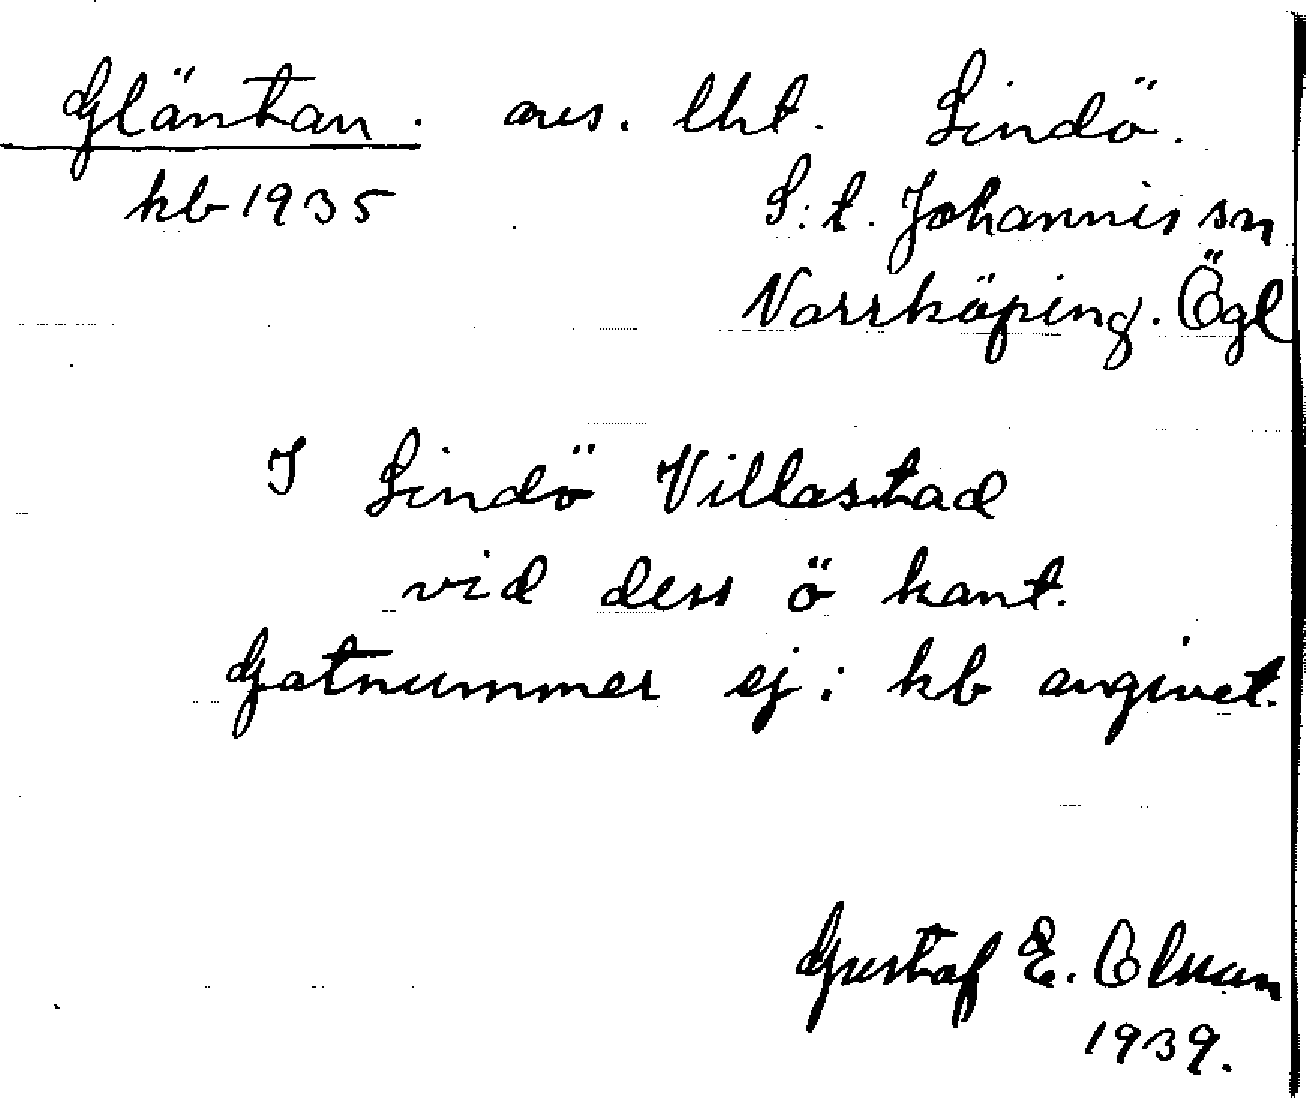 Gläntan. avs. lht. Lindö.
kb 1935 S:t. Johannis sn
Norrköping. Ögl
I Lindö Villastad
vid dess ö kant.
Gatnummer ej i kb angivet.
Gustaf E. Olsson
1939.